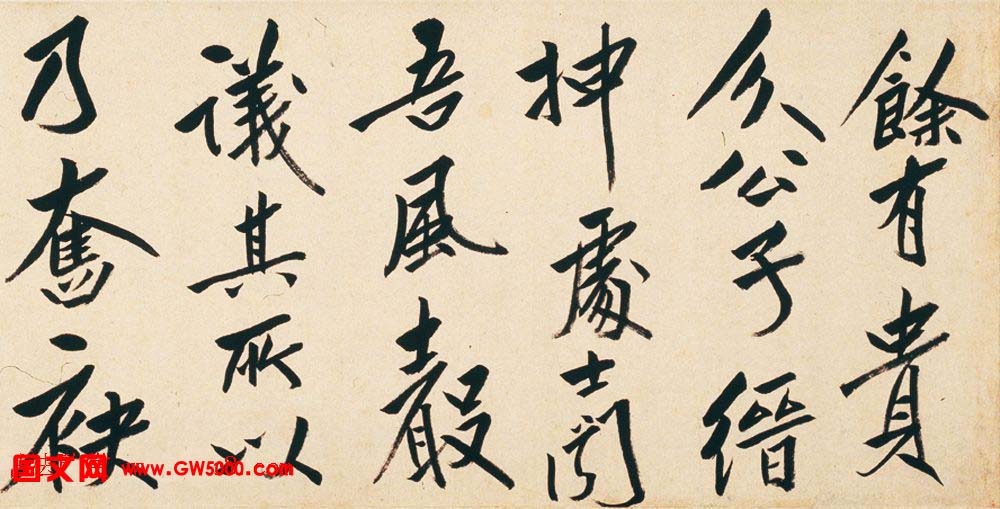 餘有貴
介公子縉
抻處士聞
吾風聲
議其所以
乃奮袂
图文网 www.GW5000.com